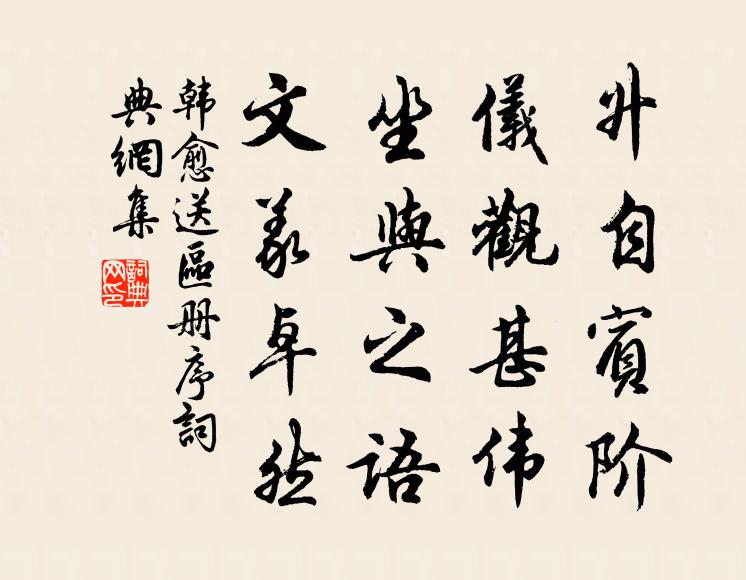 升自賓阶
儀觀甚伟
坐與之语
文義卓然
韩愈送區册序詞
典網集
詞典
网印